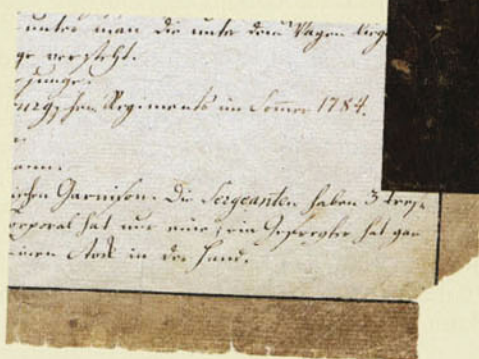 unter man die unter dem Wagen lieg
ge versteht.
junge.
Regiments im Sommer 1784.
ann.
ischen Garnison. Die Sergeanten haben 3
orporal hat nur eine, ein Gefreyter hat gar
einen Stock in der Hand.